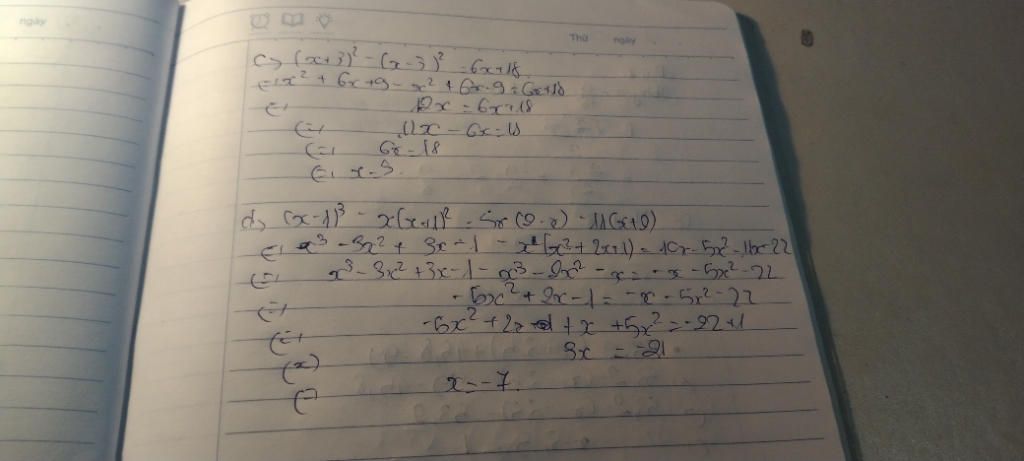 ngày
Thứ ngày
c> (x+3)² - (x-3)² = 6x+18
<=> x² + 6x + 9 - x² + 6x - 9 = 6x+18
<=> 12x = 6x+18
<=> 12x - 6x = 18
<=> 6x = 18
<=> x = 3.
d> (x-1)³ - x(x+1)² = 5x(2-x) - 11(x+2)
<=> x³ - 3x² + 3x - 1 - x(x² + 2x+1) = 10x - 5x² - 11x - 22
<=> x³ - 3x² + 3x - 1 - x³ - 2x² - x = -x - 5x² - 22
<=> -5x² + 2x - 1 = -x - 5x² - 22
<=> -5x² + 2x + x + 5x² = -22+1
(=) 3x = -21
(=) x = -7.